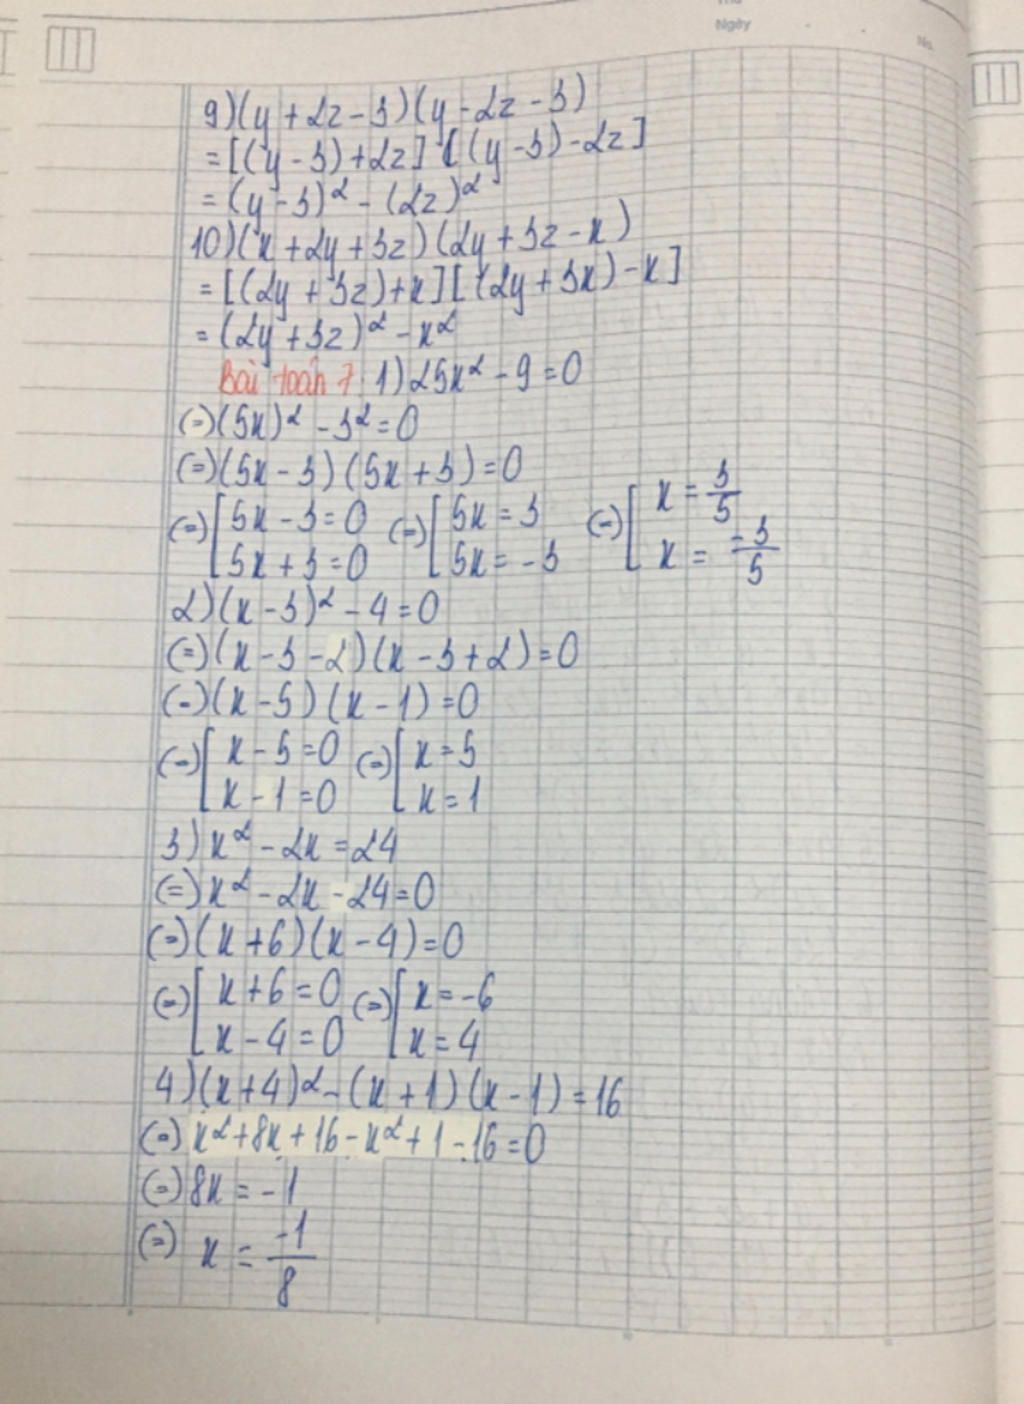 Thứ
Ngày
No.
9)(y+2z-3)(y-2z-3)
=[(y-3)+2z] [(y-3)-2z]
=(y-3)²-(2z)²
10)(x+2y+3z)(2y+3z-x)
=[(2y+3z)+x][(2y+3x)-x]
=(2y+3z)²-x²
Bài toán 7 1)25x²-9=0
(=)(5x)²-3²=0
(=)(5x-3)(5x+3)=0
(=)[5x-3=0 (=)[5x=3 (=)[x=3/5
5x+3=0 5x=-3 x=-3/5
2)(x-3)²-4=0
(=)(x-3-2)(x-3+2)=0
(=)(x-5)(x-1)=0
(=)[x-5=0 (=)[x=5
x-1=0 x=1
3)x²-2x=24
(=)x²-2x-24=0
(=)(x+6)(x-4)=0
(=)[x+6=0 (=)[x=-6
x-4=0 x=4
4)(x+4)²-(x+1)(x-1)=16
(=)x²+8x+16-x²+1-16=0
(=)8x=-1
(=) x=-1/8